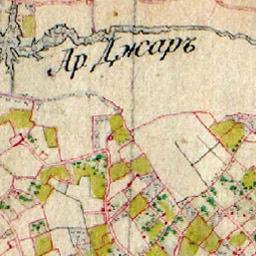 Ар Джаръ